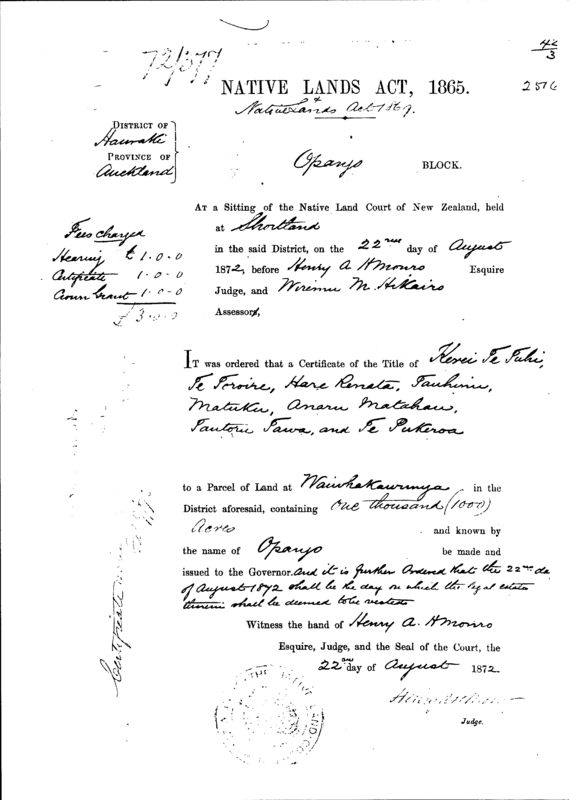 72/377
42/3
2576
NATIVE LANDS ACT, 1865.
Native Lands Act 1869.
DISTRICT OF
Hauraki
PROVINCE OF
Auckland
Opango BLOCK.
AT a Sitting of the Native Land Court of New Zealand, held
at Shortland
in the said District, on the 22nd day of August
1872, before Henry A H Monro Esquire
Judge, and Wiremu M. Hikairo
Assessor,
Fees charged
Hearing £ 1.0.0
Certificate 1.0.0
Crown Grant 1.0.0
£ 3.0.0
IT was ordered that a Certificate of the Title of Kerei Te Tuhi,
Te Toroire, Hare Renata, Tauhinu,
Matuku, Anaru Matahau,
Tautoru Tawa, and Te Pukeroa
to a Parcel of Land at Waiwhakaurunga, in the
District aforesaid, containing One thousand (1000)
Acres and known by
the name of Opango be made and
issued to the Governor. And it is further Ordered that the 22nd da
of August 1872 shall be the day on which the legal estate
therein shall be deemed to be vested
Witness the hand of Henry A. H Monro
Esquire, Judge, and the Seal of the Court, the
22nd day of August 1872.
Judge.
Certificate